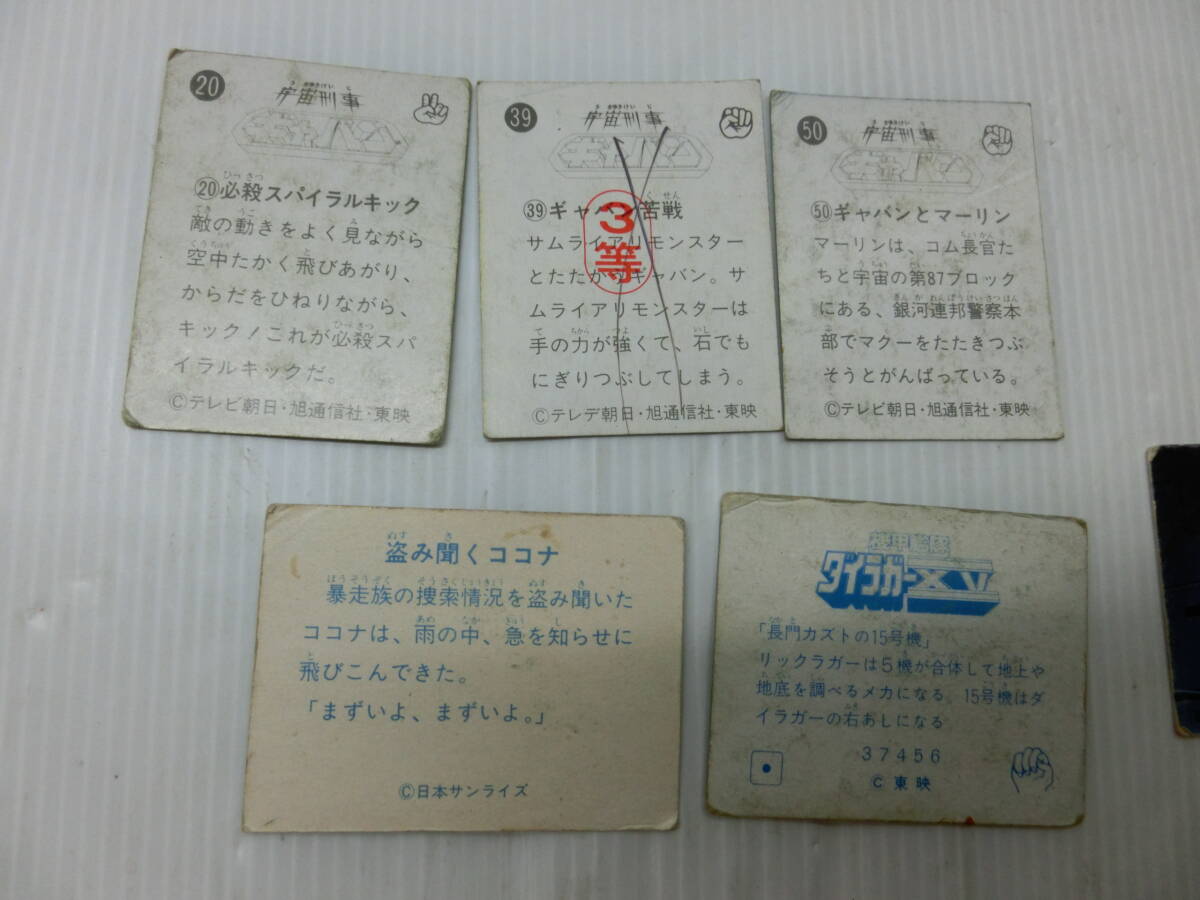 20
宇宙刑事
ギャバン
⑳必殺スパイラルキック
敵の動きをよく見ながら
空中たかく飛びあがり、
からだをひねりながら、
キック!これが必殺スパ
イラルキックだ。
©テレビ朝日・旭通信社・東映
39
宇宙刑事
ギャバン
㊴ギャバン苦戦
3等
サムライアリモンスター
とたたかうギャバン。サ
ムライアリモンスターは
手の力が強くて、石でも
にぎりつぶしてしまう。
©テレデ朝日・旭通信社・東映
50
宇宙刑事
ギャバン
㊿ギャバンとマーリン
マーリンは、コム長官た
ちと宇宙の第87ブロック
にある、銀河連邦警察本
部でマクーをたたきつぶ
そうとがんばっている。
©テレビ朝日・旭通信社・東映
盗み聞くココナ
暴走族の捜索情況を盗み聞いた
ココナは、雨の中、急を知らせに
飛びこんできた。
「まずいよ、まずいよ。」
©日本サンライズ
機甲艦隊
ダイラガーXV
「長門カズトの15号機」
リックラガーは5機が合体して地上や
地底を調べるメカになる。15号機はダ
イラガーの右あしになる
37456
© 東映